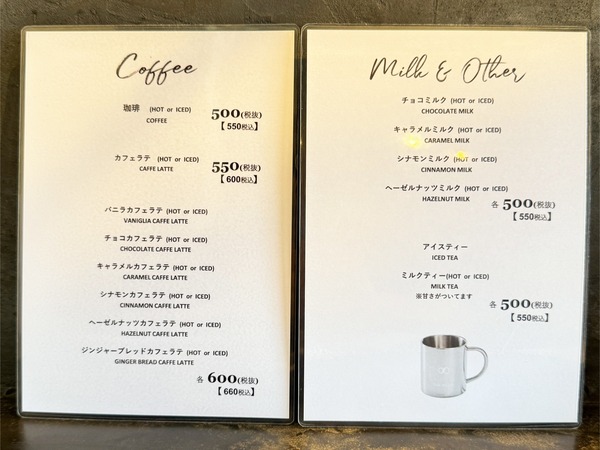 Coffee
珈琲 (HOT or ICED) 500(税抜)
COFFEE 【550税込】
カフェラテ (HOT or ICED) 550(税抜)
CAFFE LATTE 【600税込】
バニラカフェラテ (HOT or ICED)
VANIGLIA CAFFE LATTE
チョコカフェラテ (HOT or ICED)
CHOCOLATE CAFFE LATTE
キャラメルカフェラテ (HOT or ICED)
CARAMEL CAFFE LATTE
シナモンカフェラテ (HOT or ICED)
CINNAMON CAFFE LATTE
ヘーゼルナッツカフェラテ (HOT or ICED)
HAZELNUT CAFFE LATTE
ジンジャーブレッドカフェラテ (HOT or ICED)
GINGER BREAD CAFFE LATTE
各 600(税抜)
【660税込】
Milk & Other
チョコミルク (HOT or ICED)
CHOCOLATE MILK
キャラメルミルク (HOT or ICED)
CARAMEL MILK
シナモンミルク (HOT or ICED)
CINNAMON MILK
ヘーゼルナッツミルク (HOT or ICED)
HAZELNUT MILK
各 500(税抜)
【550税込】
アイスティー
ICED TEA
ミルクティー(HOT or ICED)
MILK TEA
※甘さがついてます
各 500(税抜)
【550税込】